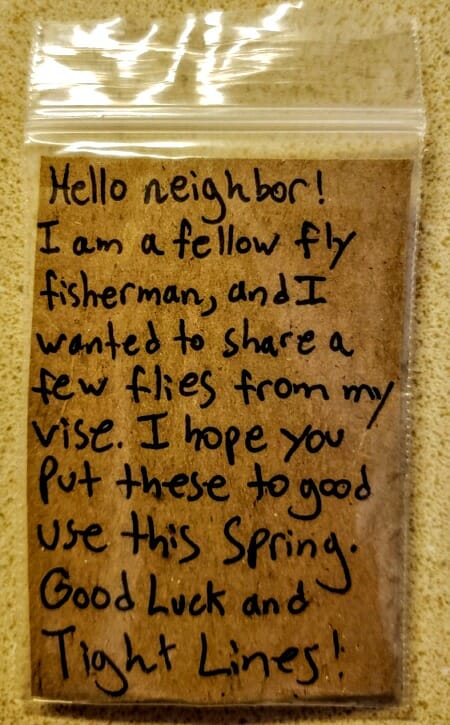 Hello neighbor!
I am a fellow fly
fisherman, and I
wanted to share a
few flies from my
vise. I hope you
Put these to good
use this Spring.
Good Luck and
Tight Lines!